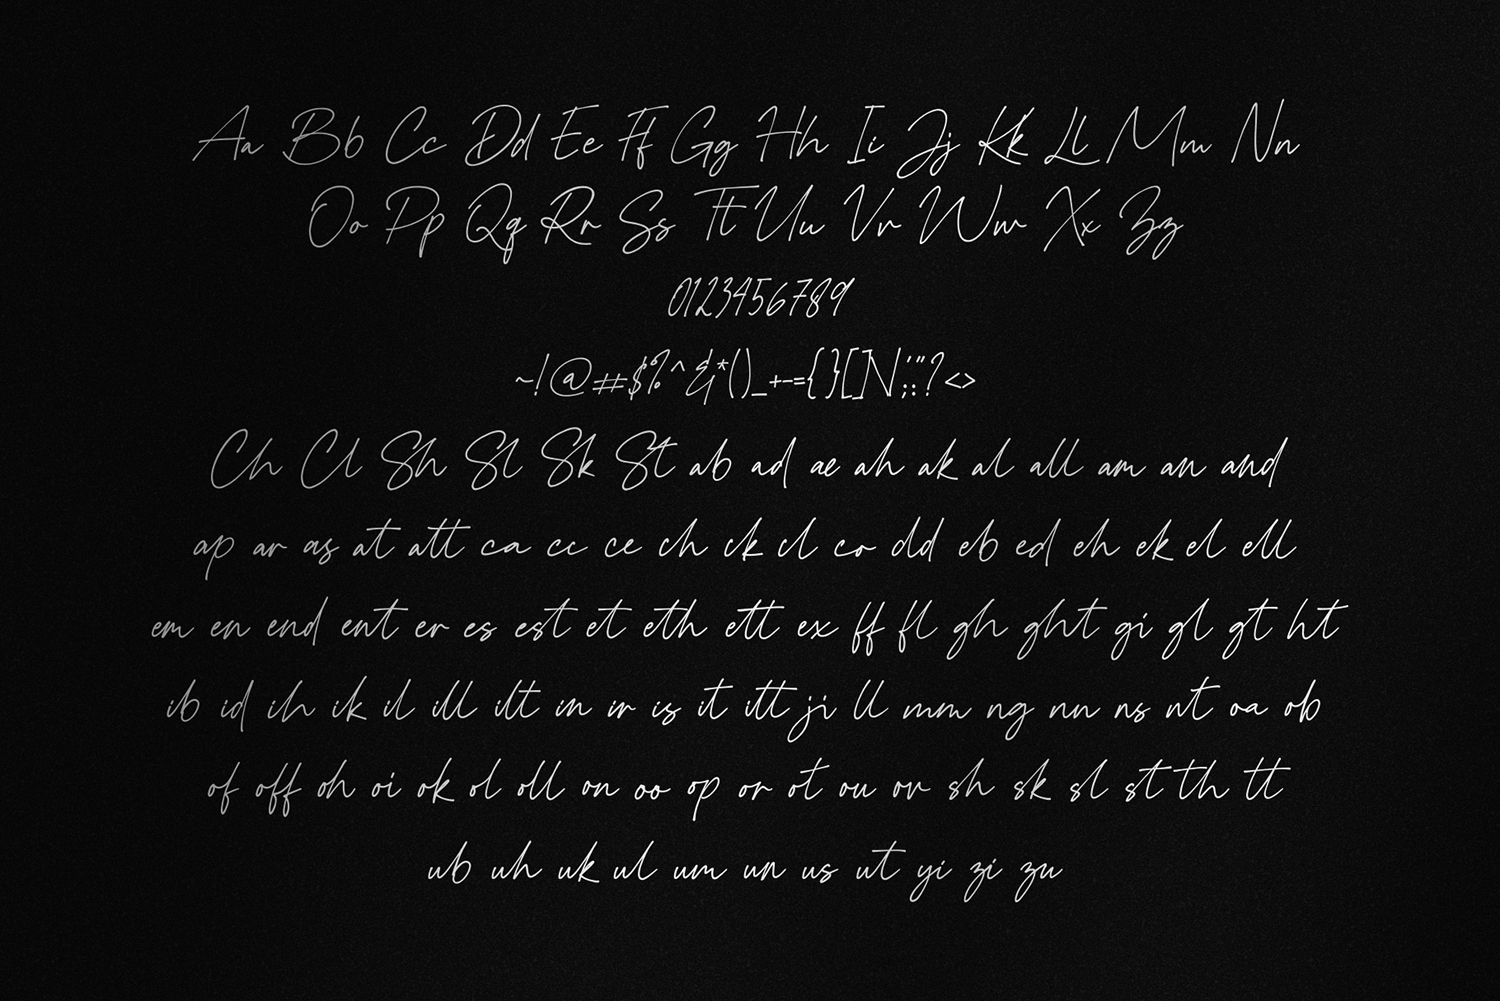 Aa Bb Cc Dd Ee Ff Gg Hh Ii Jj Kk Ll Mm Nn
Oo Pp Qq Rr Ss Tt Uu Vv Ww Xx Zz
0123456789
~!@#$%^&*()_+-={}[]\|;:'"?<>
Ch Cl Sh Sl Sk St ab ad ae ah ak al all am an and
ap ar as at att ca cc ce ch ck cl co dd eb ed eh ek el ell
em en end ent er es est et eth ett ex ff fl gh ght gi gl gt ht
ib id ih ik il ill ilt in ir is it itt ji ll mm ng nn ns nt oa ob
of off oh oi ok ol oll on oo op or ot ou ov sh sk sl st th tt
ub uh uk ul um un us ut yi zi zu